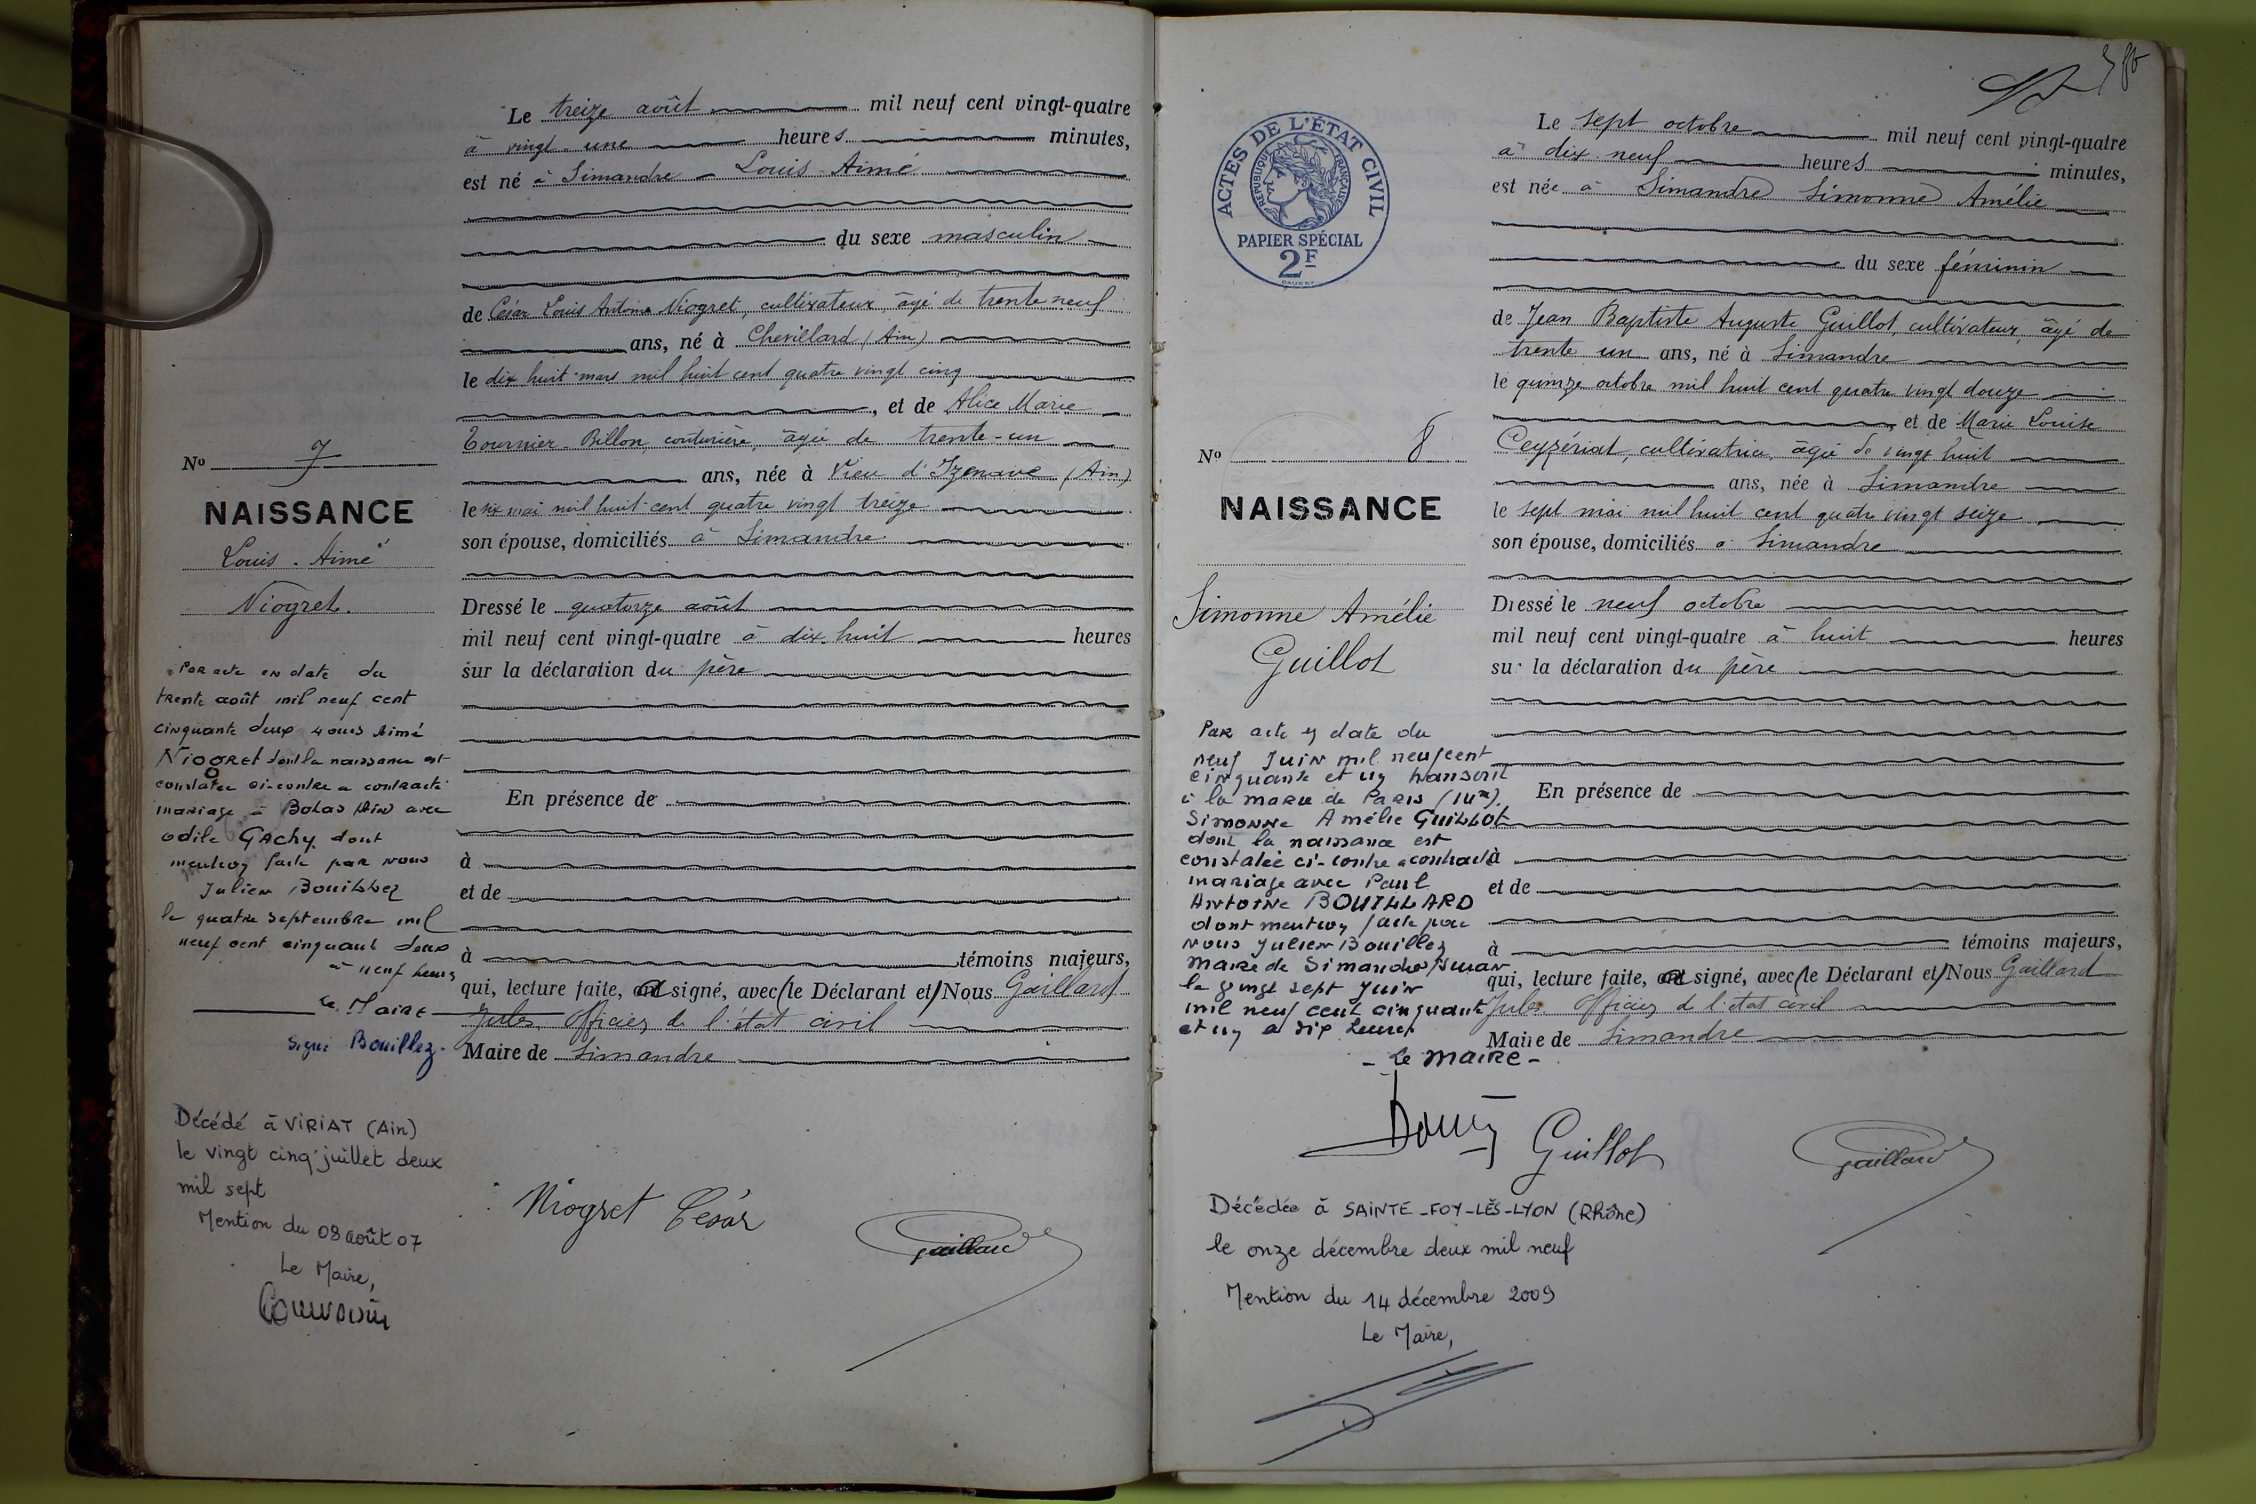 Le treize août mil neuf cent vingt-quatre
à vingt une heures minutes,
est né à Simandre Louis Aimé
du sexe masculin
de César Louis Antoine Niogret, cultivateur âgé de trente neuf
ans, né à Chevillard (Ain)
le dix huit mars mil huit cent quatre vingt cinq
, et de Alice Marie
Tournier-Billon, couturière, âgée de trente-un
ans, née à Vieu d'Izenave (Ain)
le six mai mil huit cent quatre vingt treize
son épouse, domiciliés à Simandre
Dressé le quatorze août
mil neuf cent vingt-quatre à dix huit heures
sur la déclaration du père
En présence de
à
et de
à témoins majeurs,
qui, lecture faite, ont signé, avec le Déclarant et Nous Gaillard
Jules Officier de l'état civil
Maire de Simandre
No 7
NAISSANCE
Louis. Aimé
Niogret.
Par acte en date du
trente août mil neuf cent
cinquante deux Louis Aimé
NIOGRET dont la naissance est
constatée ci-contre a contracté
mariage à Bolas (Ain) avec
Odile GACHY dont
mention faite par nous
Julien Bouillez
le quatre septembre mil
neuf cent cinquant deux
à neuf heures
le Maire
Signé Bouillez.
Décédé à VIRIAT (Ain)
le vingt cinq juillet deux
mil sept
Mention du 08 août 07
Le Maire,
Niogret César
Gaillard
ACTES DE L'ÉTAT CIVIL
RÉPUBLIQUE FRANÇAISE
PAPIER SPÉCIAL
2F
Le sept octobre mil neuf cent vingt-quatre
à dix neuf heures minutes,
est née à Simandre Simonne Amélie
du sexe féminin
de Jean Baptiste Auguste Guillot, cultivateur, âgé de
trente un ans, né à Simandre
le quinze octobre mil huit cent quatre vingt douze
et de Marie Louise
Ceyzériat, cultivatrice, âgée de vingt huit
ans, née à Simandre
le sept mai mil huit cent quatre vingt seize
son épouse, domiciliés à Simandre
Dressé le neuf octobre
mil neuf cent vingt-quatre à huit heures
sur la déclaration du père
En présence de
à
et de
à témoins majeurs,
qui, lecture faite, ont signé, avec le Déclarant et Nous Gaillard
Jules Officier de l'état civil
Maire de Simandre
No 8
NAISSANCE
Simonne Amélie
Guillot
Par acte en date du
neuf Juin mil neuf cent
cinquante et un transcrit
à la mairie de Paris
Simonne Amélie GUILLOT
dont la naissance est
constatée ci-contre a contracté
mariage avec Paul
Antoine BOUILLARD
dont mention faite par
nous Julien Bouillez
maire de Simandre/Suran
le vingt sept Juin
mil neuf cent cinquante
et un à dix heures
- Le maire -
Guillot
Gaillard
Décédée à SAINTE-FOY-LÈS-LYON (Rhône)
le onze décembre deux mil neuf
Mention du 14 décembre 2009
Le Maire,